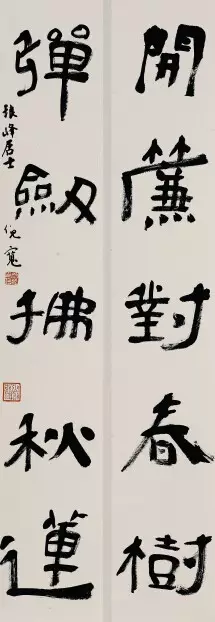 開簾對春樹
彈劔拂秋蓮
張峰居士 倪寬